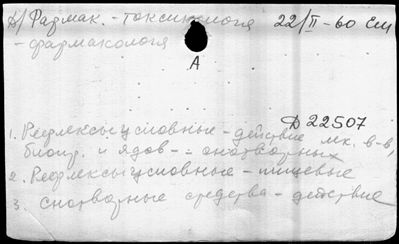 Д/ Фармак. - токсикология 22/II - 60 см
- фармакология
А
Д 22507
1. Рефлексы условные - действие мк. в-в,
биопр. и ядов - снотворных
2. Рефлексы условные - пищевые
3. Снотворные средства - действие